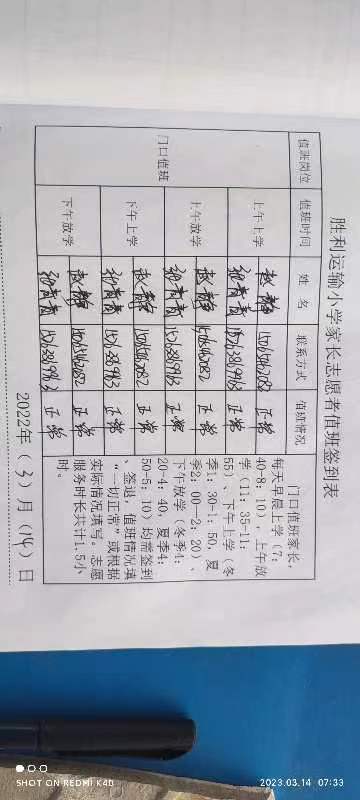 胜利运输小学家长志愿者值班签到表
值班岗位 值班时间 姓 名 联系方式 值班情况
门口值班
上午上学 赵静 正常
张青青 正常
上午放学 赵静 正常
张青青 正常
下午上学 赵静 正常
张青青 正常
下午放学 赵静 正常
张青青 正常
门口值班家长,
每天早晨上学(7:
40-8:10),上午放
学(11:35-11:
55)、下午上学(冬
季1:30-1:50,夏
季2:00—2:20)、
下午放学(冬季4:
20-4:40,夏季4:
50-5:10)均需签到
、签退,值班情况填
“一切正常”或根据
实际情况填写。志愿
服务时长共计1.5小
时。
2022年(3)月(14)日
SHOT ON REDMI K40
2023.03.14 07:33